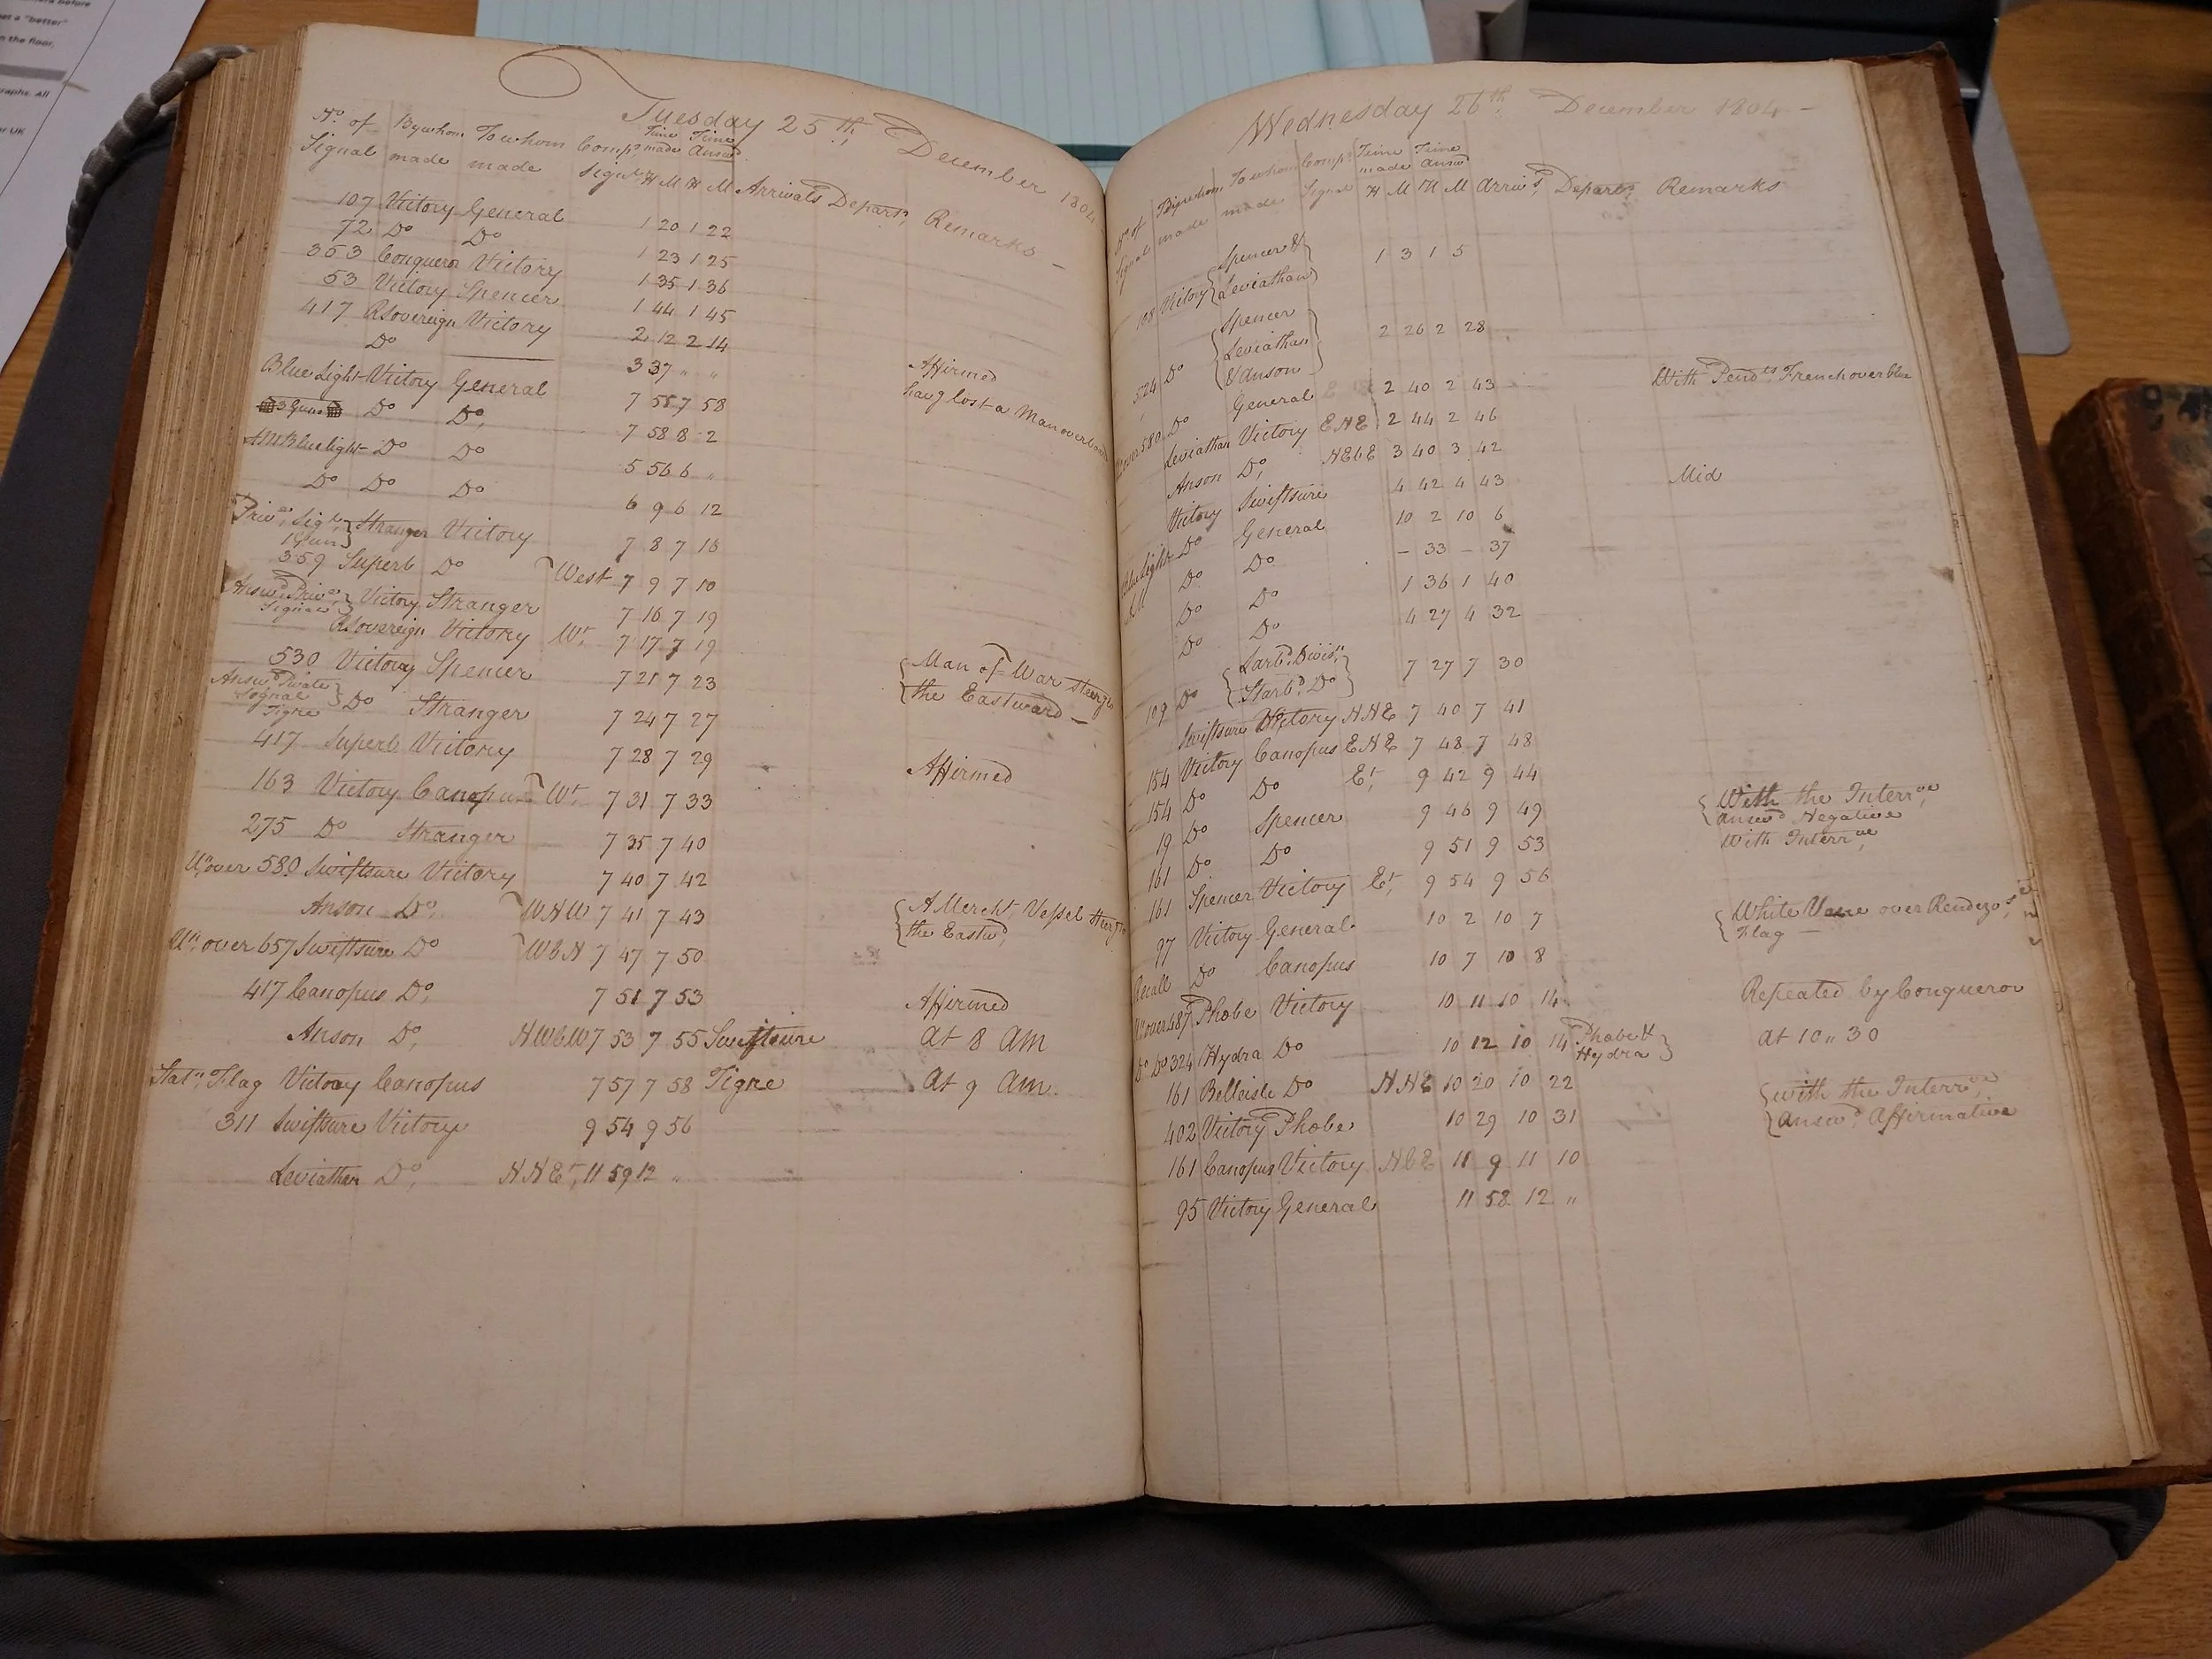 et a "better"
n the floor,
raphs. All
er UK
Tuesday 25th December 1804
No. of Signal By whom made To whom made Comps. Signl. Time made H M Time Answd. H M Arrivals Departs. Remarks
107 Victory General 1 20 1 22
72 Do Do 1 23 1 25
353 Conqueror Victory 1 35 1 36
53 Victory Spencer 1 44 1 45
417 R Sovereign Victory 2 12 2 14 Affirmed
Do 3 37 " " havg lost a Man overboard
Blue Light Victory General 7 55 7 58
3 Guns Do Do, 7 58 8 2
AM Blue light Do Do 5 56 6 "
Do Do Do 6 9 6 12
Privte. Sigl. 1 Gun } Stranger Victory 7 8 7 16
359 Superb Do West 7 9 7 10
Answd. Privte. Signal } Victory Stranger 7 16 7 19
R Sovereign Victory Wt. 7 17 7 19
530 Victory Spencer 7 21 7 23 { Man of War steerg to the Eastward
Answd. Private Signal Tigre } Do Stranger 7 24 7 27
417 Superb Victory 7 28 7 29 Affirmed
163 Victory Canopus Wt. 7 31 7 33
275 Do Stranger 7 35 7 40
Un. over 580 Swiftsure Victory 7 40 7 42
Anson Do, WNW 7 41 7 43 { A Mercht. Vessel steerg to the Eastwd,
Un. over 657 Swiftsure Do WbN 7 47 7 50
417 Canopus Do, 7 51 7 53 Affirmed
Anson Do, NWbW 7 53 7 55 Swiftsure At 8 AM
Statn. Flag Victory Canopus 7 57 7 58 Tigre At 9 AM.
311 Swiftsure Victory 9 54 9 56
Leviathan Do, NNEt, 11 59 12 "
Wednesday 26th December 1804 -
No. of Signal By whom made To whom made Comps. Signal Time made H M Time answd H M Arrivs. Departs. Remarks
108 Victory { Spencer & Leviathan } 1 3 1 5
524 Do { Spencer Leviathan & Anson } 2 26 2 28
Un. over 580 Do General 2 40 2 43 With Pendts. French over blue
Leviathan Victory ENE 2 44 2 46
Anson Do, NEbE 3 40 3 42
Victory Swiftsure 4 42 4 43 Mid
Blue Light Do General 10 2 10 6
AM Do Do - 33 - 37
Do Do 1 36 1 40
Do Do 4 27 4 32
109 Do { Larbd. Divisn. Starbd. Do } 7 27 7 30
Swiftsure Victory NNE 7 40 7 41
154 Victory Canopus ENE 7 48 7 48
154 Do Do Et, 9 42 9 44
19 Do Spencer 9 46 9 49 { With the Interrve, answd. Negative
161 Do Do 9 51 9 53 With Interrve,
161 Spencer Victory Et, 9 54 9 56
97 Victory General 10 2 10 7 { White Vane over Rendezvs. Flag -
Recall Do Canopus 10 7 10 8
Un. over 487 Phobe Victory 10 11 10 14 Repeated by Conqueror
Do Do 324 Hydra Do 10 12 10 14 Phobe & Hydra } At 10 " 30
161 Belleisle Do NNE 10 20 10 22
402 Victory Phobe 10 29 10 31 { with the Interrve, answd. Affirmative
161 Canopus Victory NbE 11 9 11 10
95 Victory General 11 58 12 "